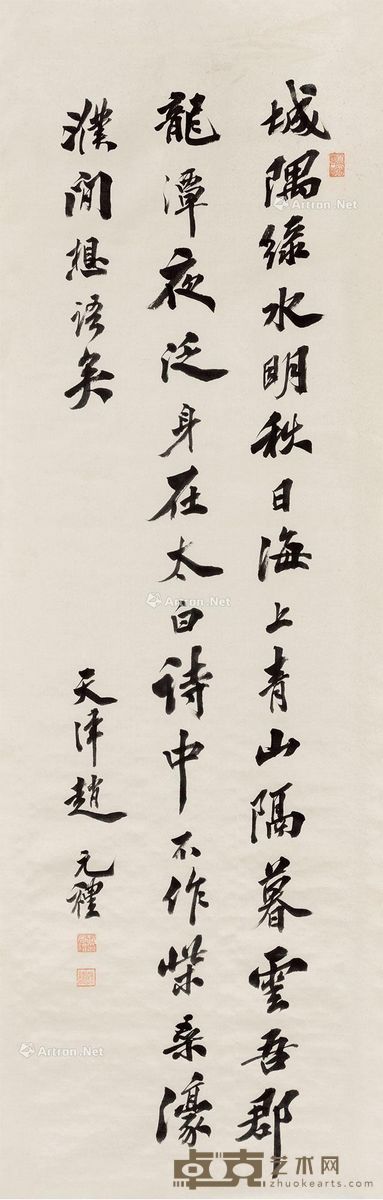 城隅綠水明秋日海上青山隔暮雲吾郡
龍潭夜泛身在太白詩中不作柴桑濠
濮間想語矣
天津趙元禮
Artron.Net
Artron.Net
Artron.Net
Artron.Net
卓克艺术网
zhuokearts.com